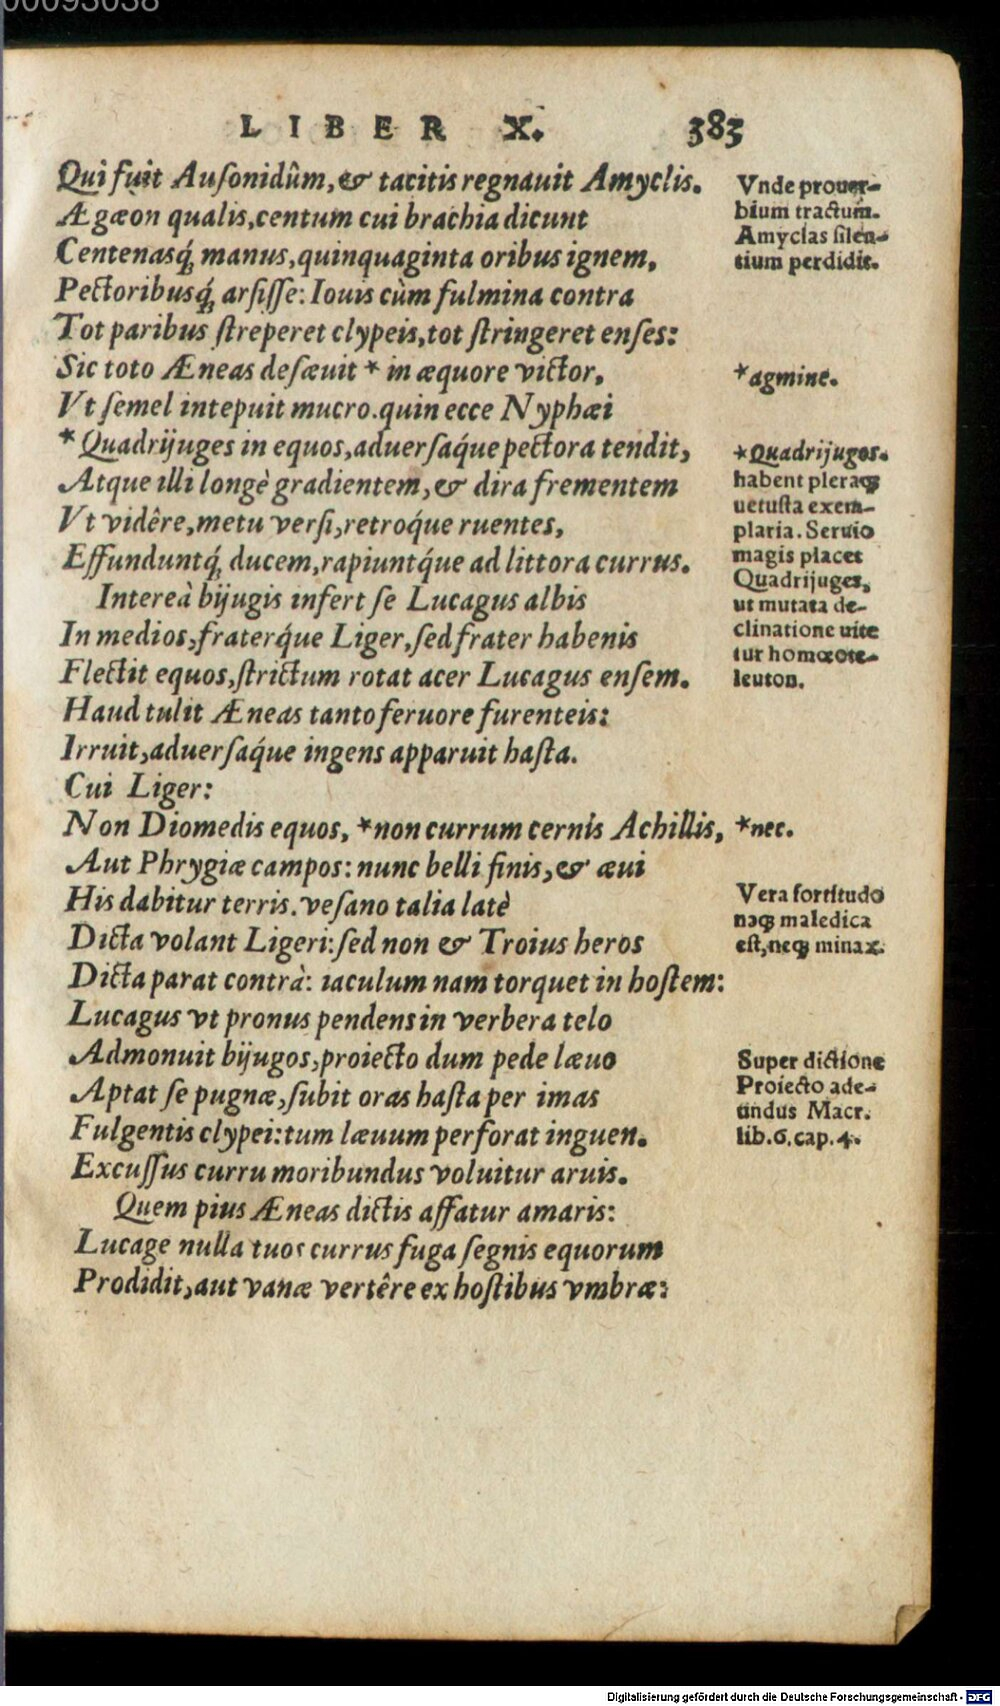 00093038
LIBER X. 383
Qui fuit Auſonidûm, & tacitis regnauit Amyclis.
Ægæon qualis, centum cui brachia dicunt
Centenasq́; manus, quinquaginta oribus ignem,
Pectoribusq́; arſiſſe: Iouis cùm fulmina contra
Tot paribus ſtreperet clypeis, tot ſtringeret enſes:
Sic toto Æneas deſæuit * in æquore victor,
Vt ſemel intepuit mucro. quin ecce Nyphæi
* Quadrijuges in equos, aduerſaq́ue pectora tendit,
Atque illi longè gradientem, & dira frementem
Vt vidêre, metu verſi, retroq́ue ruentes,
Effunduntq́; ducem, rapiuntq́ue ad littora currus.
Intereà bijugis infert ſe Lucagus albis
In medios, fraterq́ue Liger, ſed frater habenis
Flectit equos, ſtrictum rotat acer Lucagus enſem.
Haud tulit Æneas tanto feruore furenteis:
Irruit, aduerſaq́ue ingens apparuit haſta.
Cui Liger:
Non Diomedis equos, * non currum cernis Achillis,
Aut Phrygiæ campos: nunc belli finis, & æui
His dabitur terris. veſano talia latè
Dicta volant Ligeri: ſed non & Troius heros
Dicta parat contrà: iaculum nam torquet in hoſtem:
Lucagus vt pronus pendens in verbera telo
Admonuit bijugos, proiecto dum pede læuo
Aptat ſe pugnæ, ſubit oras haſta per imas
Fulgentis clypei: tum læuum perforat inguen.
Excuſſus curru moribundus voluitur aruis.
Quem pius Æneas dictis affatur amaris:
Lucage nulla tuos currus fuga ſegnis equorum
Prodidit, aut vanæ vertêre ex hoſtibus vmbræ:
Vnde prouer-
bium tractum.
Amyclas ſilen-
tium perdidit.
* agmine.
* Quadrijugos.
habent pleraq;
uetuſta exem-
plaria. Seruio
magis placet
Quadrijuges,
ut mutata de-
clinatione uite
tur homœote-
leuton.
* nec.
Vera fortitudo
neq; maledica
eſt, neq; minax.
Super dictione
Proiecto ade-
undus Macr.
lib.6.cap.4.
Digitalisierung gefördert durch die Deutsche Forschungsgemeinschaft - DFG